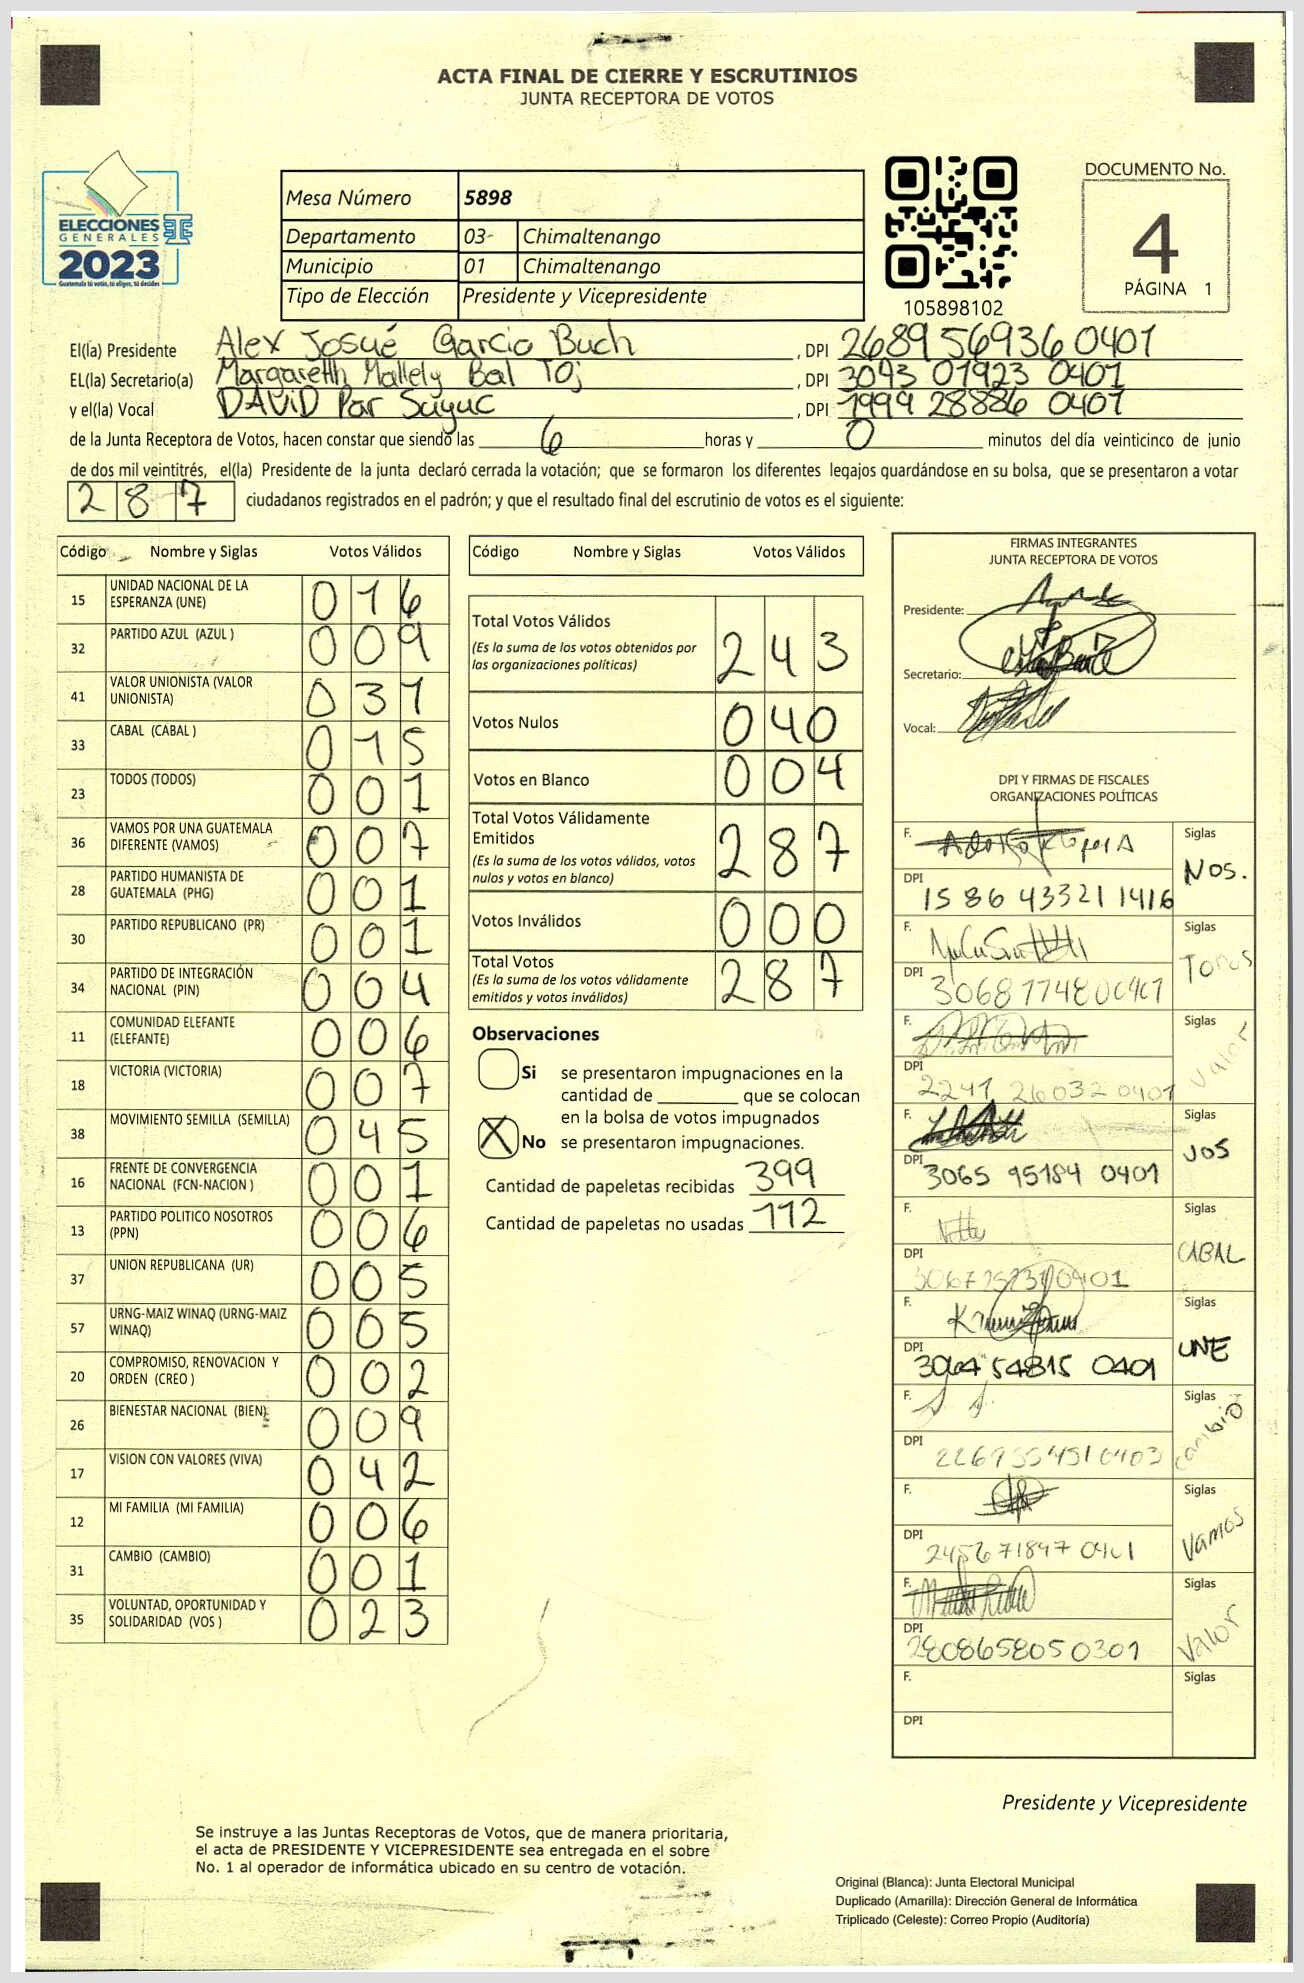 ACTA FINAL DE CIERRE Y ESCRUTINIOS
JUNTA RECEPTORA DE VOTOS
ELECCIONES
GENERALES
2023
Guatemala tú votás, tú eliges, tú decides
Mesa Número 5898
Departamento 03 Chimaltenango
Municipio 01 Chimaltenango
Tipo de Elección Presidente y Vicepresidente
105898102
DOCUMENTO No.
4
PÁGINA 1
El(la) Presidente Alex Josué Garcia Buch, DPI 2689 56936 0401
EL(la) Secretario(a) Margareth Mallely Bal Toj, DPI 3043 01923 0401
y el(la) Vocal DAViD Par Suyuc, DPI 1999 28886 0401
de la Junta Receptora de Votos, hacen constar que siendo las 6 horas y 0 minutos del día veinticinco de junio
de dos mil veintitrés, el(la) Presidente de la junta declaró cerrada la votación; que se formaron los diferentes legajos guardándose en su bolsa, que se presentaron a votar
287 ciudadanos registrados en el padrón; y que el resultado final del escrutinio de votos es el siguiente:
Código Nombre y Siglas Votos Válidos
15 UNIDAD NACIONAL DE LA ESPERANZA (UNE) 016
32 PARTIDO AZUL (AZUL ) 009
41 VALOR UNIONISTA (VALOR UNIONISTA) 031
33 CABAL (CABAL ) 015
23 TODOS (TODOS) 001
36 VAMOS POR UNA GUATEMALA DIFERENTE (VAMOS) 007
28 PARTIDO HUMANISTA DE GUATEMALA (PHG) 001
30 PARTIDO REPUBLICANO (PR) 001
34 PARTIDO DE INTEGRACIÓN NACIONAL (PIN) 004
11 COMUNIDAD ELEFANTE (ELEFANTE) 006
18 VICTORIA (VICTORIA) 007
38 MOVIMIENTO SEMILLA (SEMILLA) 045
16 FRENTE DE CONVERGENCIA NACIONAL (FCN-NACION ) 001
13 PARTIDO POLITICO NOSOTROS (PPN) 006
37 UNION REPUBLICANA (UR) 005
57 URNG-MAIZ WINAQ (URNG-MAIZ WINAQ) 005
20 COMPROMISO, RENOVACION Y ORDEN (CREO ) 002
26 BIENESTAR NACIONAL (BIEN) 009
17 VISION CON VALORES (VIVA) 042
12 MI FAMILIA (MI FAMILIA) 006
31 CAMBIO (CAMBIO) 001
35 VOLUNTAD, OPORTUNIDAD Y SOLIDARIDAD (VOS ) 023
Código Nombre y Siglas Votos Válidos
Total Votos Válidos 243
(Es la suma de los votos obtenidos por
las organizaciones políticas)
Votos Nulos 040
Votos en Blanco 004
Total Votos Válidamente
Emitidos 287
(Es la suma de los votos válidos, votos
nulos y votos en blanco)
Votos Inválidos 000
Total Votos 287
(Es la suma de los votos válidamente
emitidos y votos inválidos)
Observaciones
Si se presentaron impugnaciones en la
cantidad de ________ que se colocan
en la bolsa de votos impugnados
X No se presentaron impugnaciones.
Cantidad de papeletas recibidas 399
Cantidad de papeletas no usadas 112
FIRMAS INTEGRANTES
JUNTA RECEPTORA DE VOTOS
Presidente:
Secretario:
Vocal:
DPI Y FIRMAS DE FISCALES
ORGANIZACIONES POLÍTICAS
F. Siglas NOS.
DPI 1586 43321 1416
F. Siglas Todos
DPI
F. Siglas Valor
DPI 2241 26032 0401
F. Siglas VOS
DPI 3065 95184 0401
F. Siglas CABAL
DPI
F. Siglas UNE
DPI 3064 54815 0401
F. Siglas Cambio
DPI
F. Siglas Vamos
DPI 2456 71897 0401
F. Siglas Valor
DPI 2808658050301
F. Siglas
DPI
Presidente y Vicepresidente
Se instruye a las Juntas Receptoras de Votos, que de manera prioritaria,
el acta de PRESIDENTE Y VICEPRESIDENTE sea entregada en el sobre
No. 1 al operador de informática ubicado en su centro de votación.
Original (Blanca): Junta Electoral Municipal
Duplicado (Amarilla): Dirección General de Informática
Triplicado (Celeste): Correo Propio (Auditoría)